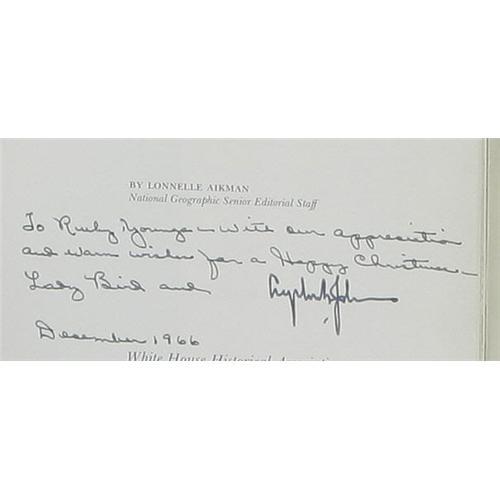 BY LONNELLE AIKMAN
National Geographic Senior Editorial Staff
To Ruby Young – With our appreciation
and warm wishes for a Happy Christmas –
Lady Bird and Lyndon B. Johnson
December 1966
White House Historical Association